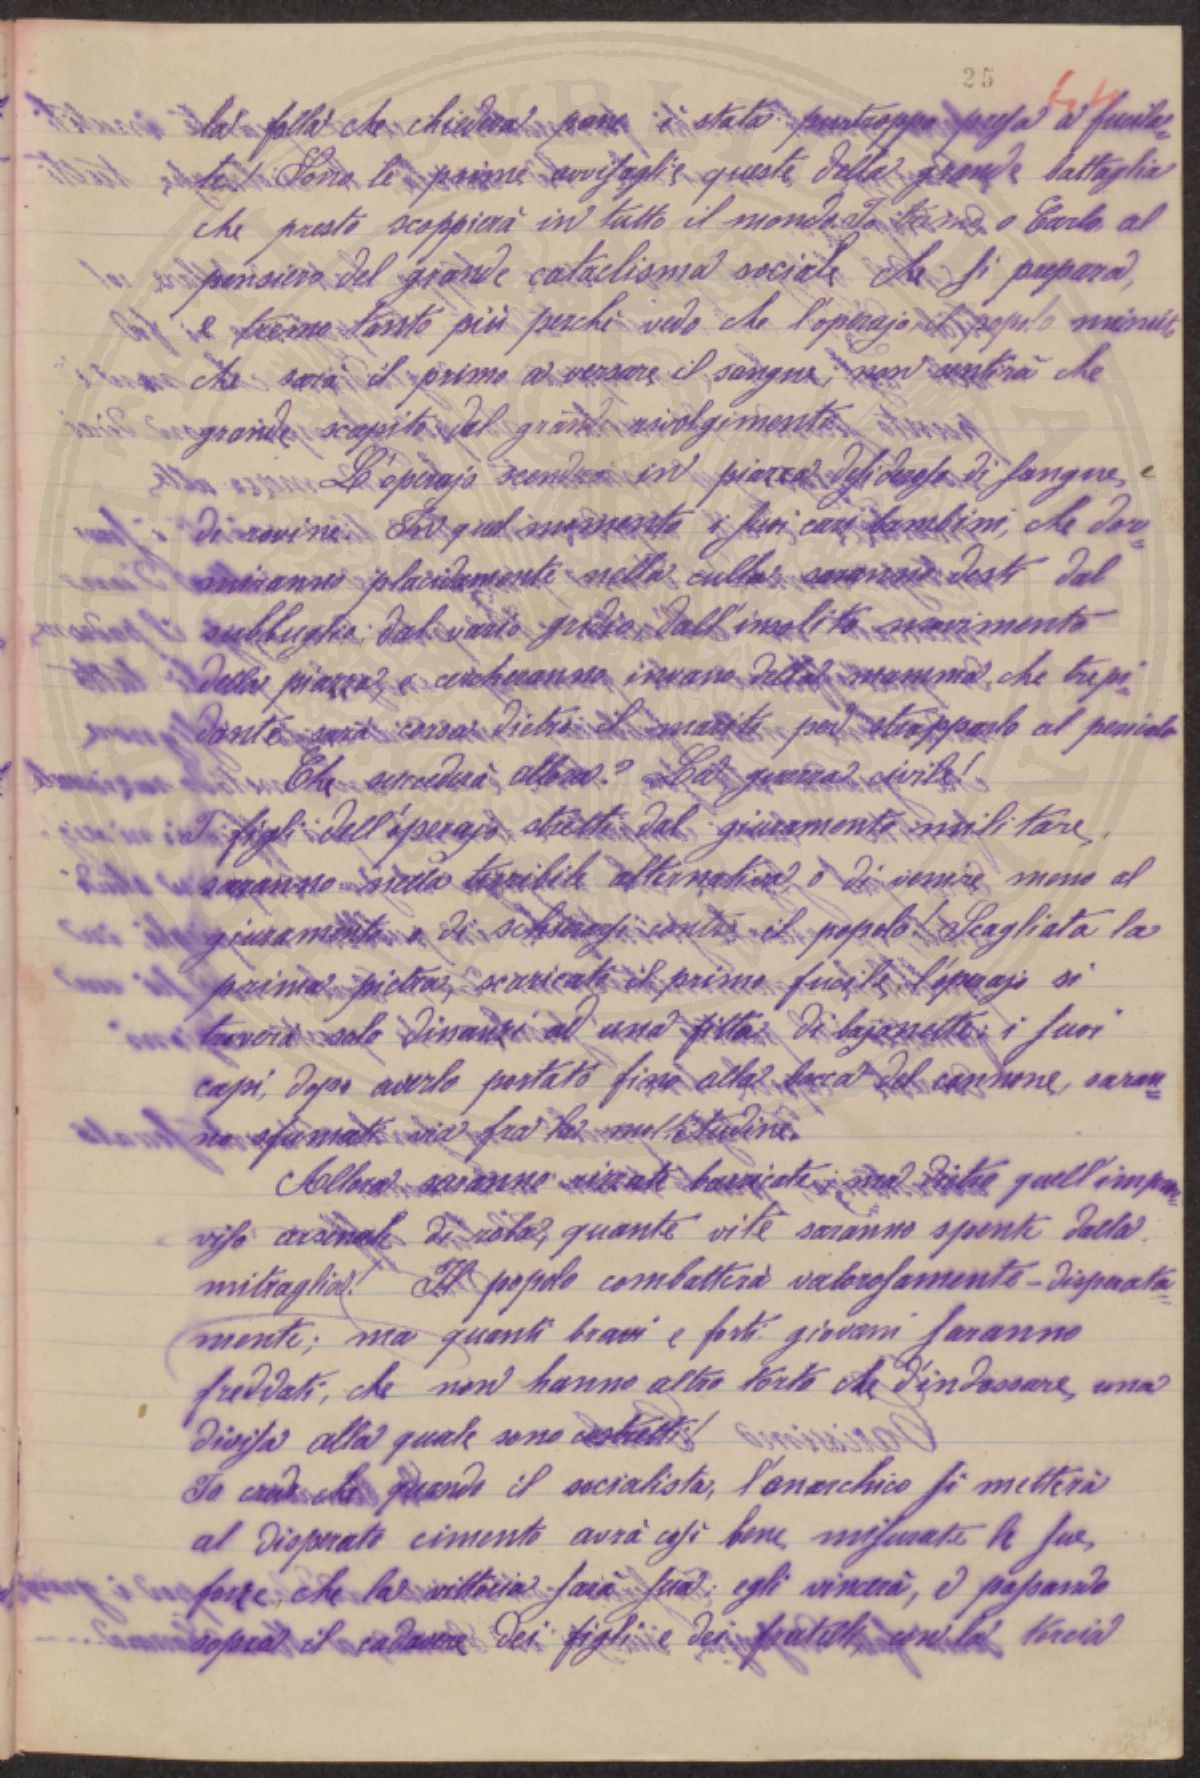 25
la folla che chiedeva pane è stata purtroppo presa a fucila=
te! Sono le prime avvisaglie queste della grande battaglia
che presto scoppierà in tutto il mondo. Io temo, o Carlo, al
pensiero del grande cataclisma sociale che si prepara,
e tremo tanto più perchè vedo che l'operajo, il popolo minuto
che sarà il primo a versare il sangue, non sentirà che
grande scapito dal grande rivolgimento.
L'operajo scenderà in piazza desideroso di sangue, e
di rovine. In quel momento i suoi cari bambini, che dor=
miranno placidamente nella culla, saranno desti dal
subbuglio, dal vario grido, dall'insolito movimento
della piazza, e cercheranno invano della mamma, che trepi=
dante sarà corsa dietro il marito per strapparlo al pericolo
Che succederà allora? La guerra civile!
I figli dell'operajo stretti dal giuramento militare,
saranno nella terribile alternativa, o di venire meno al
giuramento o di schierarsi contro il popolo! Scagliata la
prima pietra, scaricato il primo fucile, l'operajo si
troverà solo dinanzi ad una fitta di bajonette: i suoi
capi, dopo averlo portato fino alla bocca del cannone, saran=
no sfumati via fra la moltitudine.
Allora saranno rizzate barricate; ma dietro quell'improv=
viso arsenale di roba, quante vite saranno spente dalla
mitraglia! Il popolo combatterà valorosamente - disperata=
mente; ma quanti bravi e forti giovani saranno
freddati, che non hanno altro torto che d'indossare una
divisa alla quale sono costretti!
Io credo che quando il socialista, l'anarchico si metterà
al disperato cimento avrà così bene misurate le sue
forze, che la vittoria sarà sua: egli vincerà, e passando
sopra il cadavere dei figli e dei fratelli, con la torcia